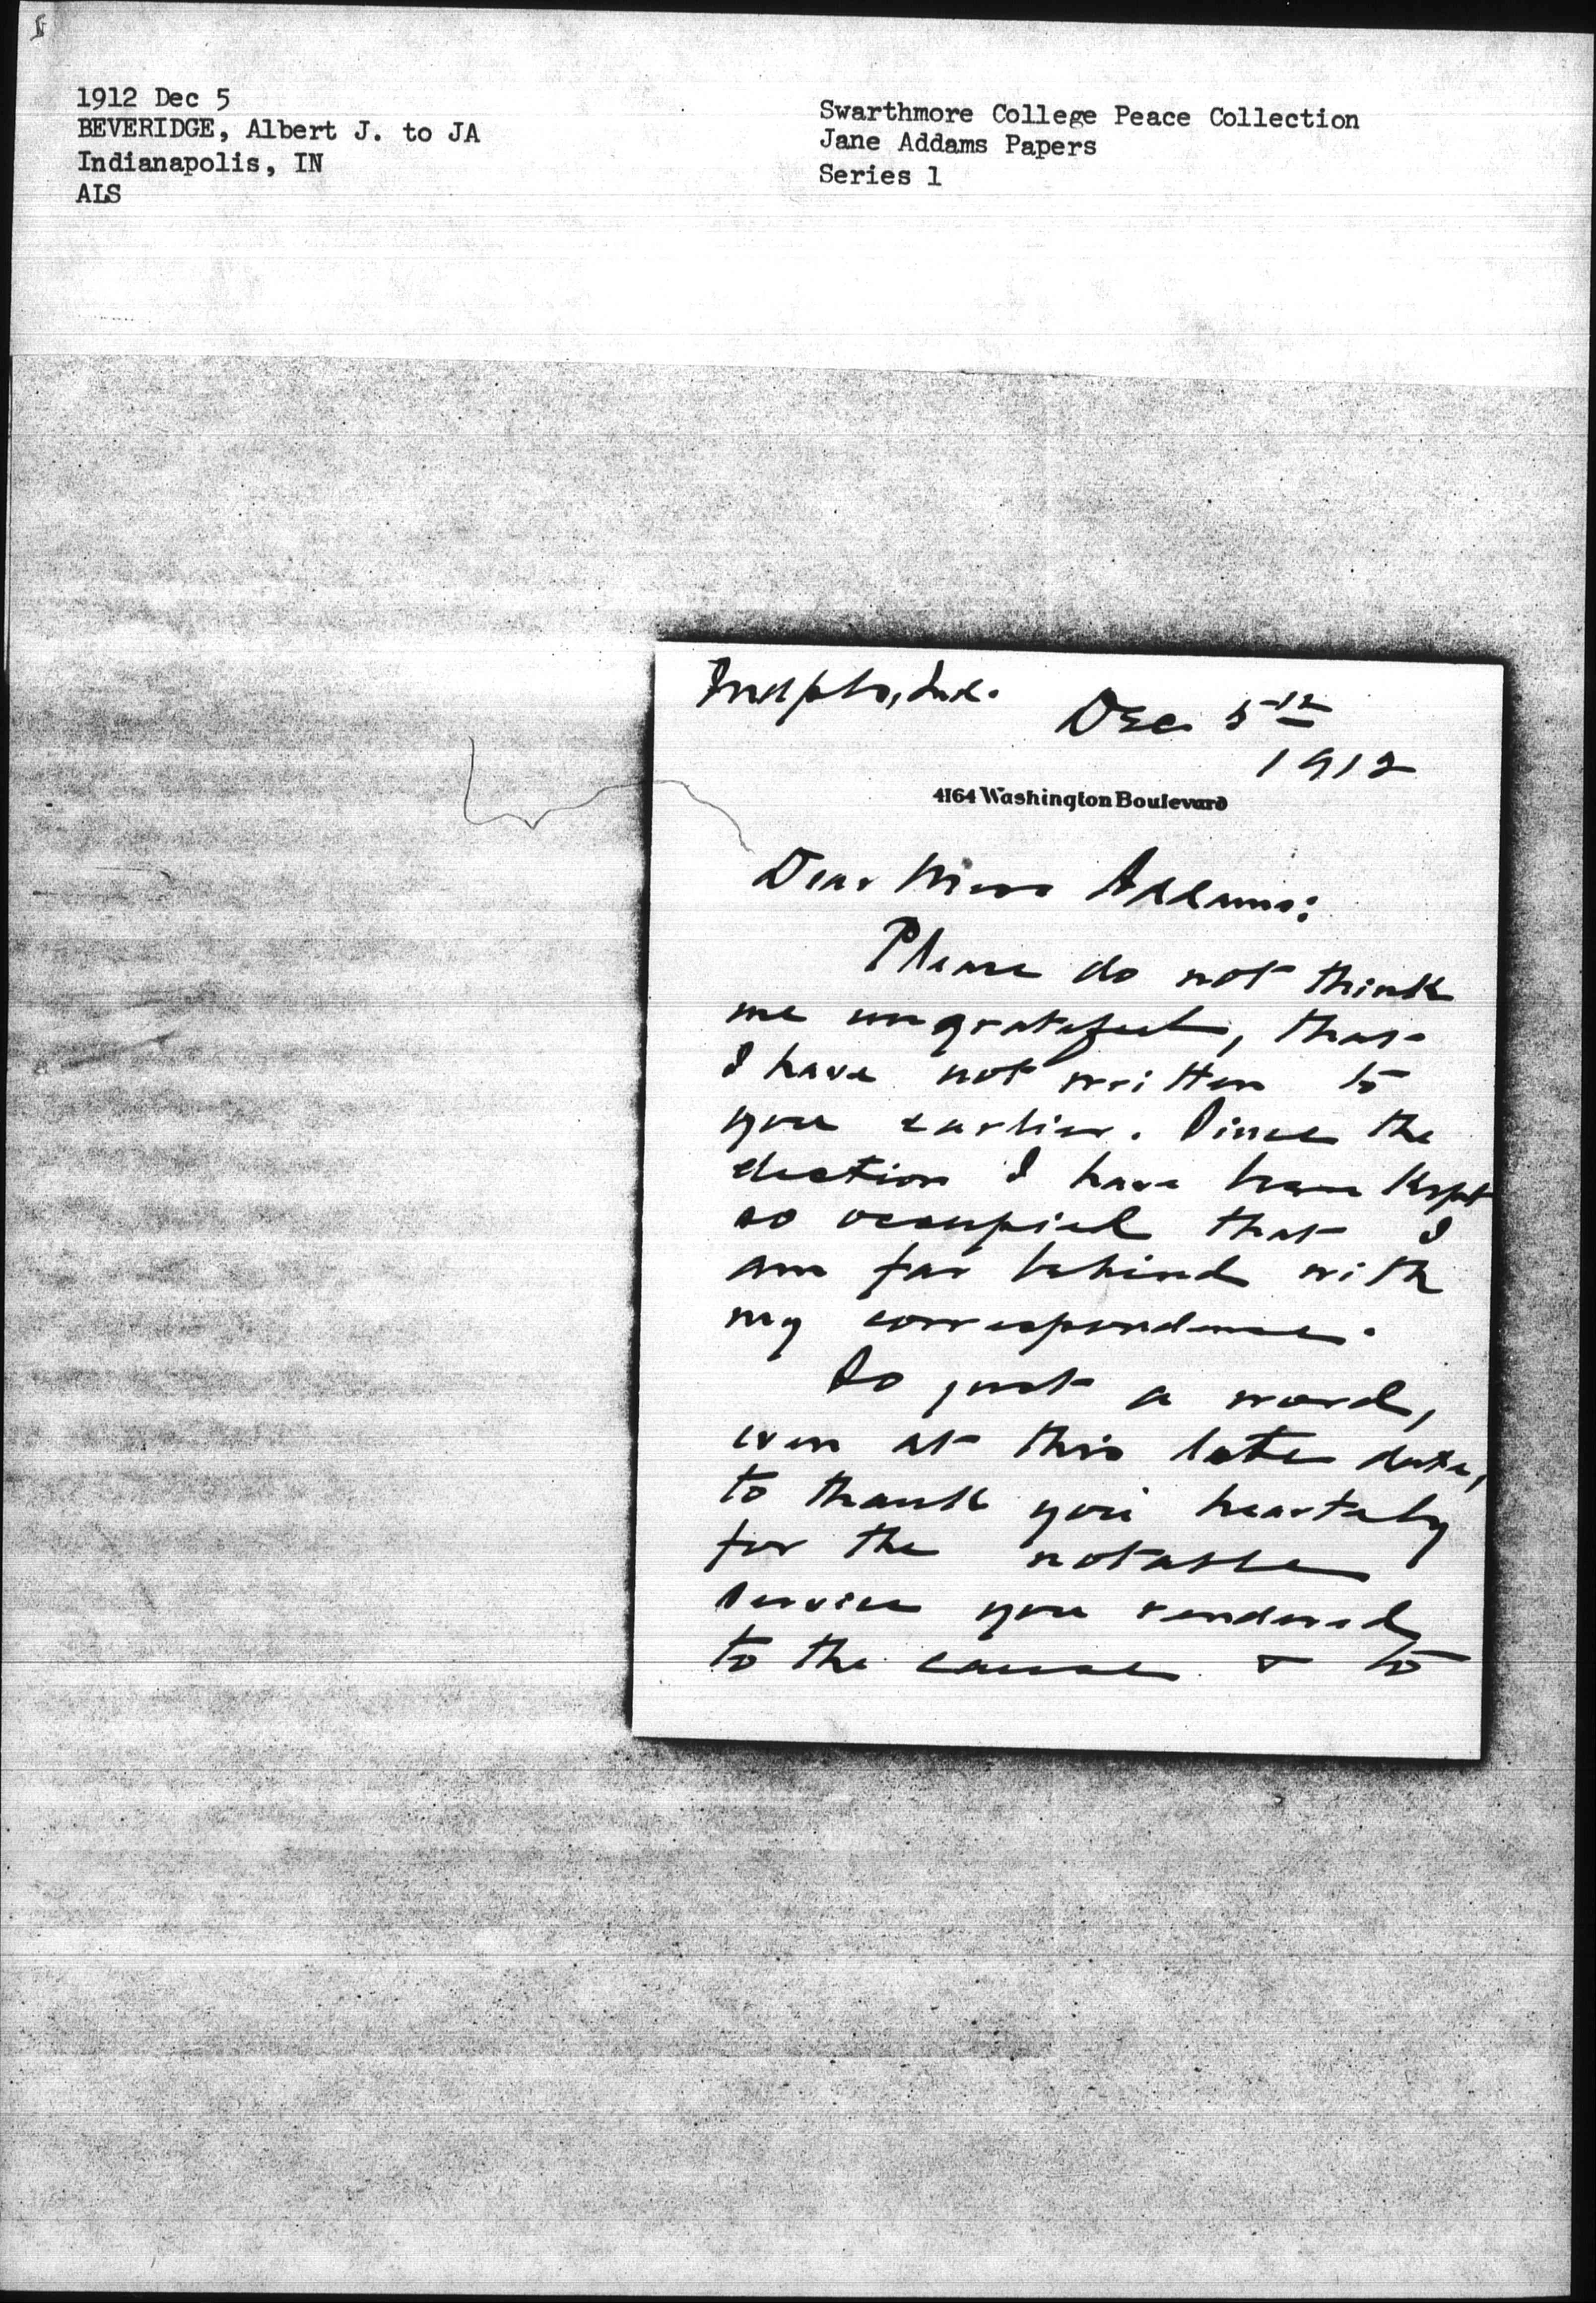 1912 Dec 5
BEVERIDGE, Albert J. to JA
Indianapolis, IN
ALS
Swarthmore College Peace Collection
Jane Addams Papers
Series 1
Indpls, Ind.
Dec 5th
1912
4164 Washington Boulevard
Dear Miss Addams:
Please do not think
me ungrateful, that
I have not written to
you earlier. Since the
election I have been kept
so occupied that I
am far behind with
my correspondence.
So just a word,
even at this late date,
to thank you heartily
for the notable
service you rendered
to the cause & to